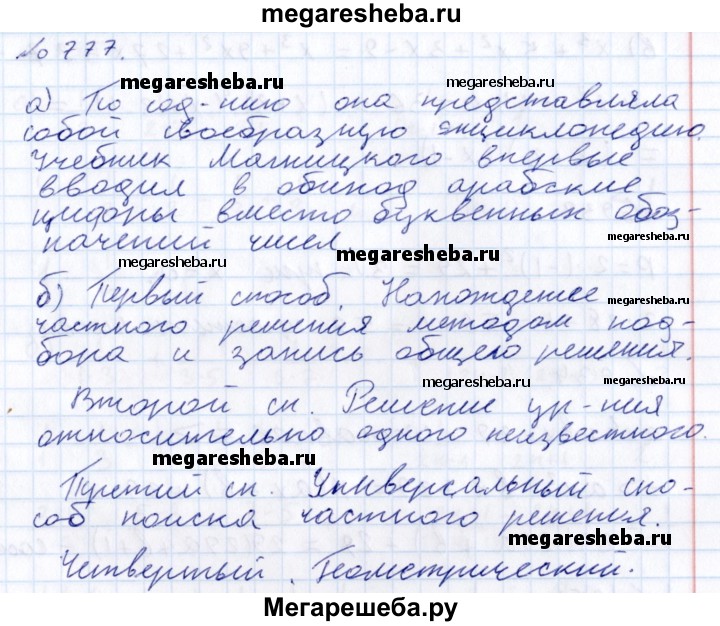 megaresheba.ru
№ 777.
megaresheba.ru megaresheba.ru
а) По сод-нию она представляла
собой своеобразную энциклопедию.
megaresheba.ru
Учебник Магницкого впервые
вводил в обиход арабские
megaresheba.ru
цифры вместо буквенных обоз-
начений чисел.
megaresheba.ru megaresheba.ru
б) Первый способ. Нахождение
megaresheba.ru
частного решения методом под-
бора и запись общего решения.
megaresheba.ru megaresheba.ru
Второй сп. Решение ур-ния
относительно одного неизвестного.
megaresheba.ru
Третий сп. Универсальный спо-
соб поиска частного решения.
megaresheba.ru
Четвертый. Геометрический.
Мегарешеба.ру